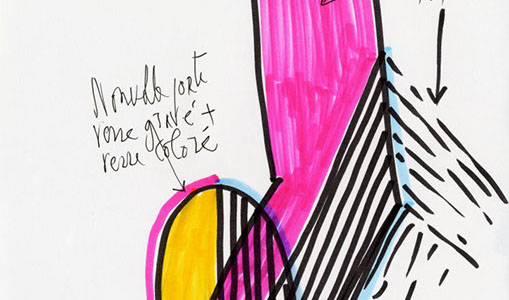 Nouvelle porte
verre gravé +
verre coloré